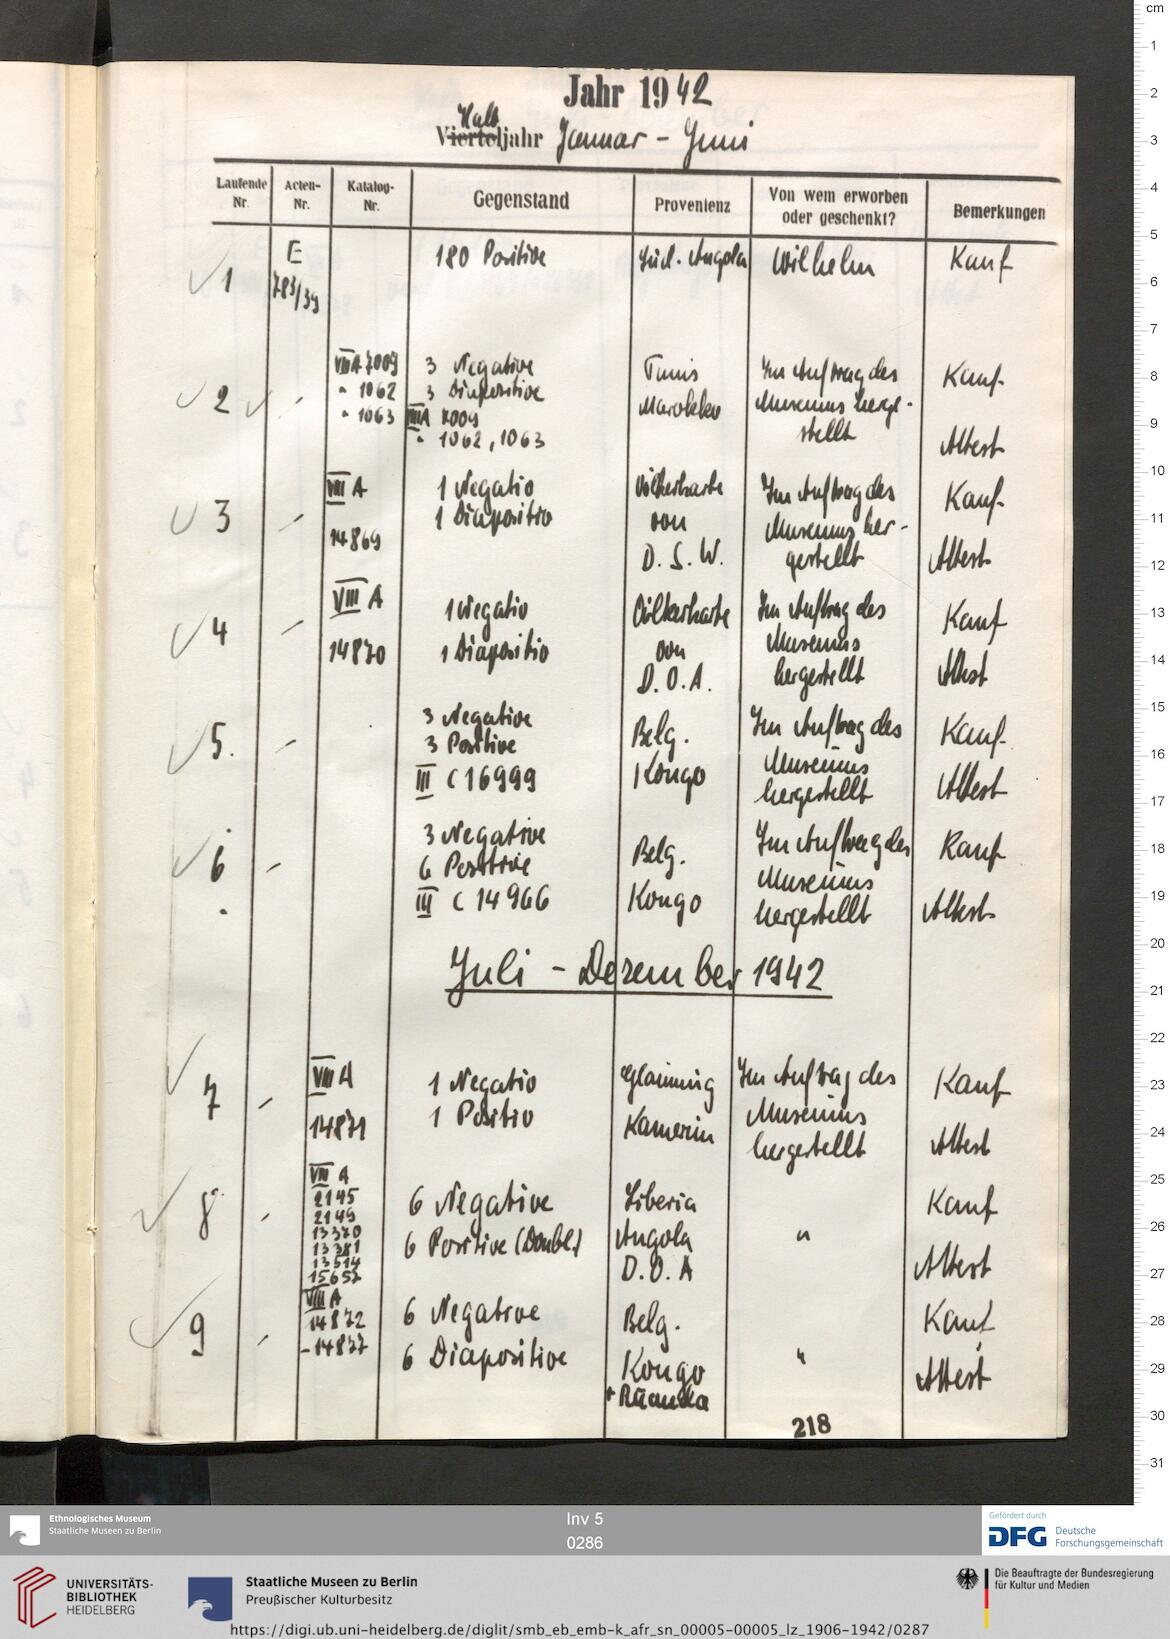 Jahr 1942
Halb
Vierteljahr Januar - Juni
Laufende Nr.
Acten-Nr.
Katalog-Nr.
Gegenstand
Provenienz
Von wem erworben oder geschenkt?
Bemerkungen
1 E 783/39 180 Positive Süd-Angola Wilhelm Kauf
2 VIII A 7009 3 Negative Tunis Im Auftrag des Kauf
" 1062 3 Diapositive Marokko Museums herge-
" 1063 VIII A 7009 stellt Attest
" 1062, 1063
3 VIII A 1 Negativ Völkerkarte Im Auftrag des Kauf
1 Diapositiv von Museums her-
14869 D. S. W. gestellt Attest
4 VIII A 1 Negativ Völkerkarte Im Auftrag des Kauf
14870 1 Diapositiv von Museums
D. O. A. hergestellt Attest
5. 3 Negative Belg. Im Auftrag des Kauf
3 Positive Museums
III C 16999 Kongo hergestellt Attest
6 3 Negative Belg. Im Auftrag des Kauf
6 Positive Museums
III C 14966 Kongo hergestellt Attest
Juli - Dezember 1942
7 VIII A 1 Negativ Glauning Im Auftrag des Kauf
14871 1 Positiv Kamerun Museums
hergestellt Attest
8 VIII A
2145 6 Negative Liberia Kauf
2149
13370 6 Positive (Double) Angola "
13381
13514 D. O. A Attest
15657
9 VIII A
14872 6 Negative Belg. Kauf
- 14877 6 Diapositive Kongo " Attest
+ Ruanda
218
cm
1
2
3
4
5
6
7
8
9
10
11
12
13
14
15
16
17
18
19
20
21
22
23
24
25
26
27
28
29
30
31
Ethnologisches Museum
Staatliche Museen zu Berlin
Inv 5
0286
Gefördert durch
DFG Deutsche Forschungsgemeinschaft
UNIVERSITÄTS-
BIBLIOTHEK
HEIDELBERG
Staatliche Museen zu Berlin
Preußischer Kulturbesitz
Die Beauftragte der Bundesregierung
für Kultur und Medien
https://digi.ub.uni-heidelberg.de/diglit/smb_eb_emb-k_afr_sn_00005-00005_lz_1906-1942/0287